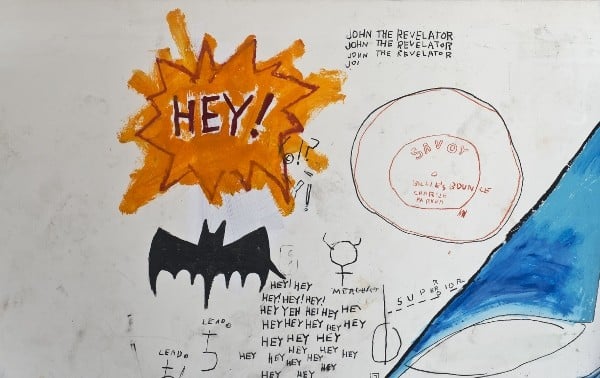 JOHN THE REVELATOR
JOHN THE REVELATOR
JOHN THE REVELATOR
JO
HEY!
!?
?!
SAVOY
BILLIE'S BOUNCE
CHARLIE
PARKER
SUPERIOR
HEY! HEY
HEY! HEY! HEY!
HEY YEH HEI HEY HE
HEY HEY HEY HEY HEY
HEY HEY HEY
HEY HEY HEY HEY
HEY HEY HEY
HEY HEY
LEAD
LEAD